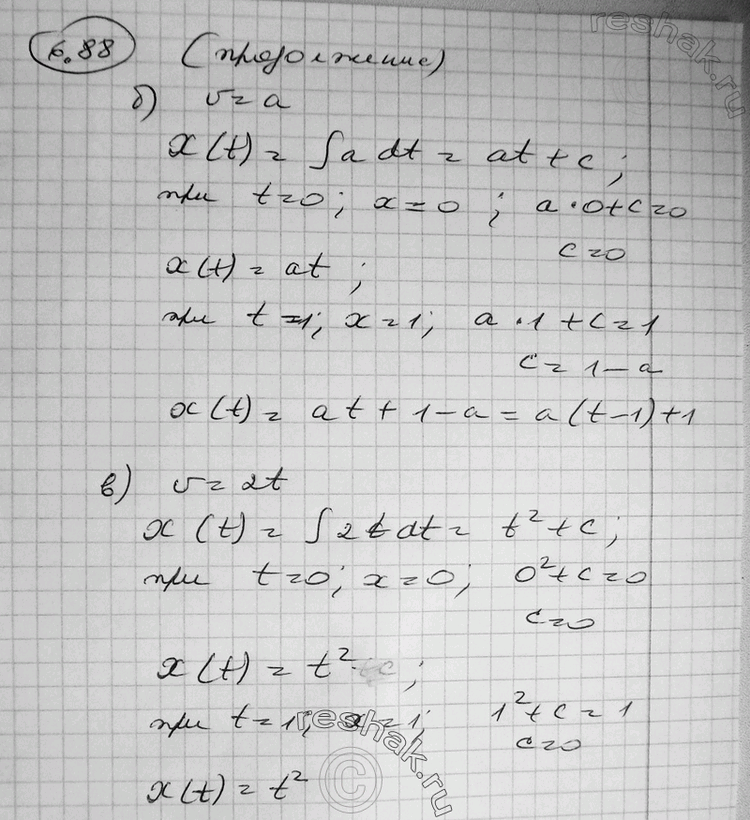 6.88 (продолжение)
б) v = a
x(t) = ∫a dt = at + c;
при t=0; x=0; a·0+c=0
c=0
x(t) = at;
при t=1; x=1; a·1+c=1
c=1-a
x(t) = at+1-a = a(t-1)+1
в) v=2t
x(t) = ∫2t dt = t²+c;
при t=0; x=0; 0²+c=0
c=0
x(t) = t²;
при t=1; x=1; 1²+c=1
c=0
x(t) = t²
reshak.ru
reshak.ru
©